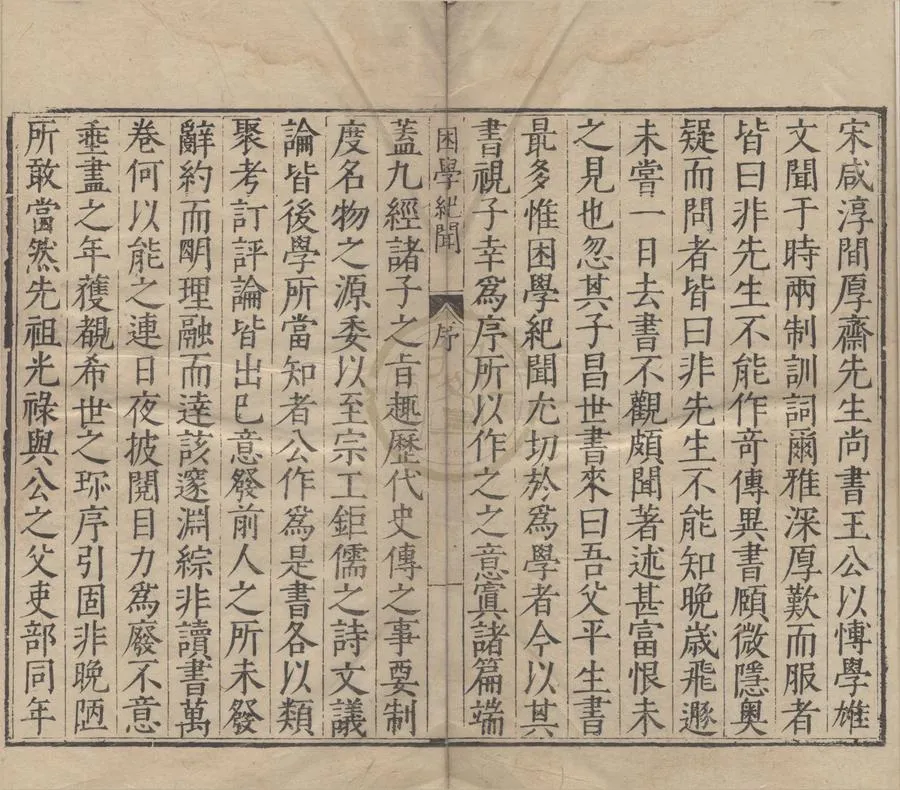 宋咸淳間厚齋先生尚書王公以博學雄
文聞于時兩制訓詞爾雅深厚歎而服者
皆曰非先生不能作奇傳異書願微隱奧
疑而問者皆曰非先生不能知晚歳飛遯
未嘗一日去書不觀頗聞著述甚富恨未
之見也忽其子昌世書來曰吾父平生書
最多惟困學紀聞尤切於為學者今以其
書視子幸為序所以作之之意寘諸篇端
困學紀聞 序
蓋九經諸子之旨趣歷代史傳之事要制
度名物之源委以至宗工鉅儒之詩文議
論皆後學所當知者公作為是書各以類
聚考訂評論皆出已意發前人之所未發
辭約而明理融而達該邃淵綜非讀書萬
卷何以能之連日夜披閱目力為廢不意
垂盡之年獲覩希世之珎序引固非晚陋
所敢當然先祖光祿與公之父吏部同年